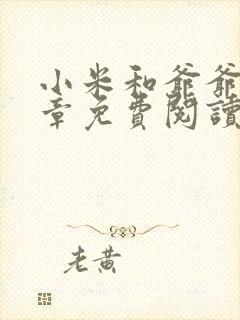 小米和爺爺
章免費閱讀
老黃